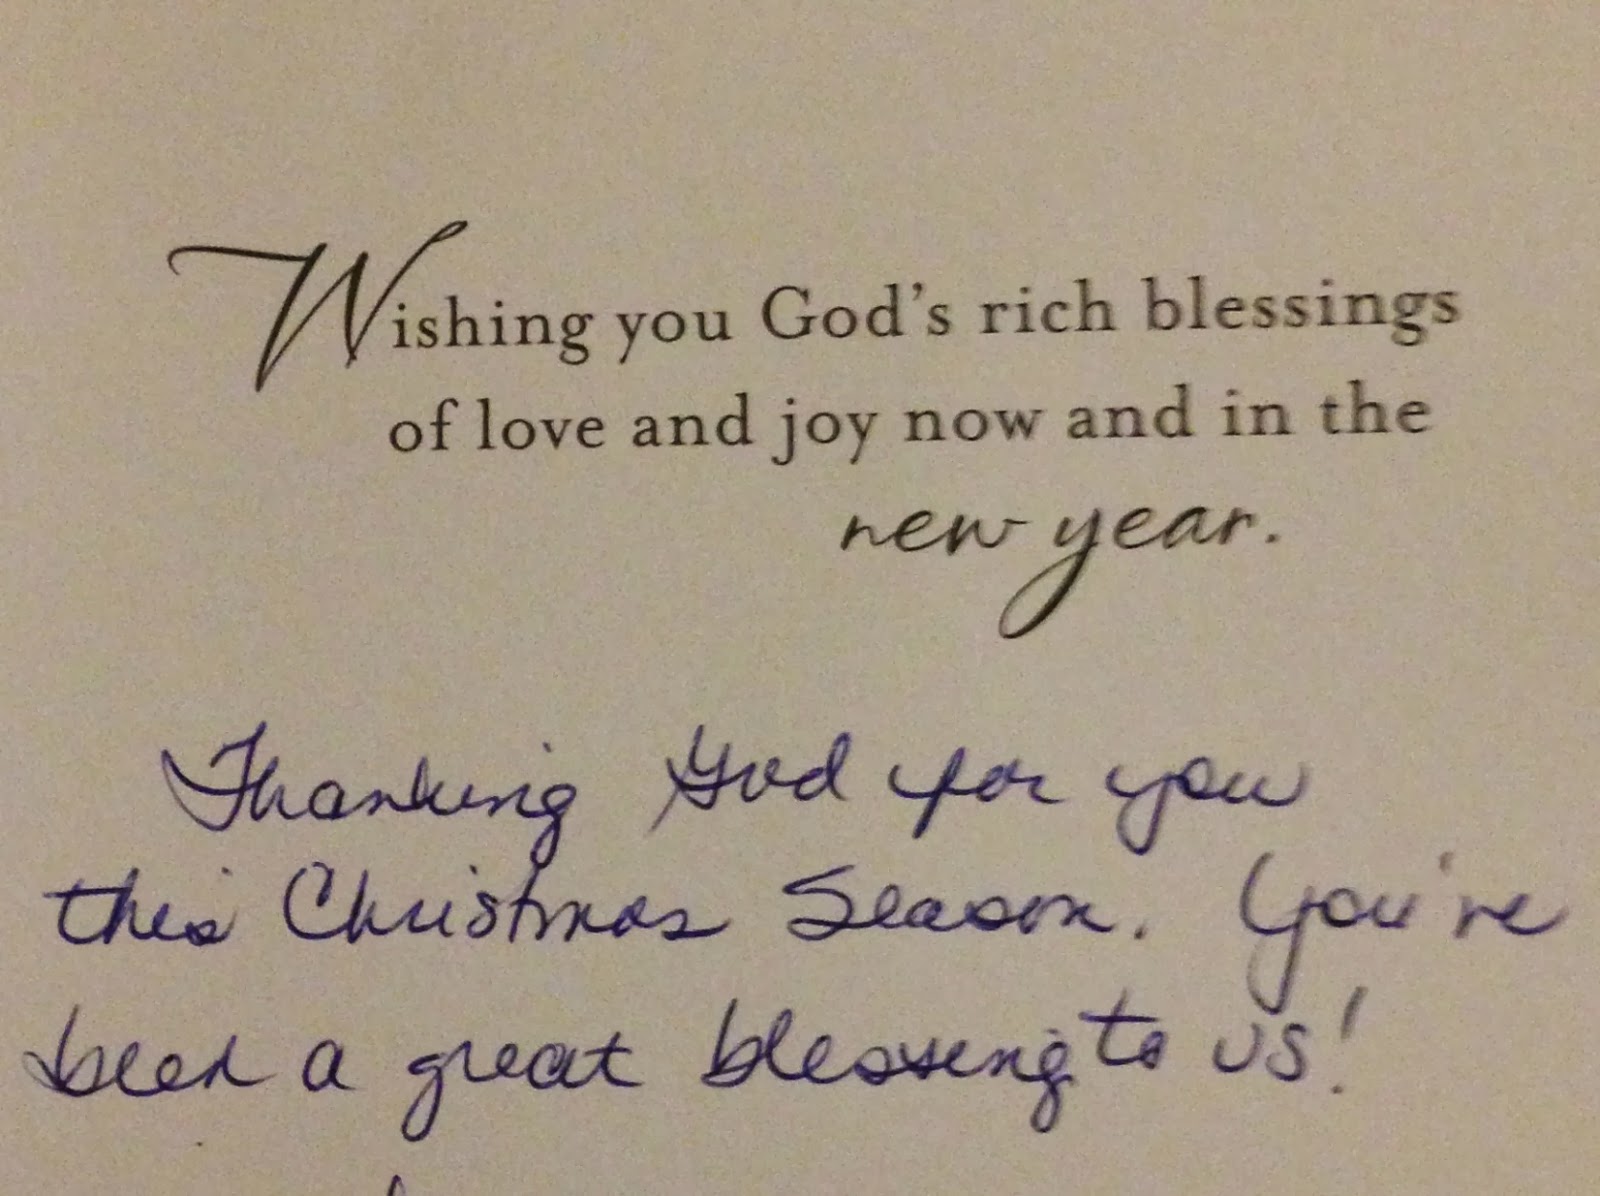 Wishing you God's rich blessings
of love and joy now and in the
new year.
Thanking God for you
this Christmas Season. You're
been a great blessing to us!